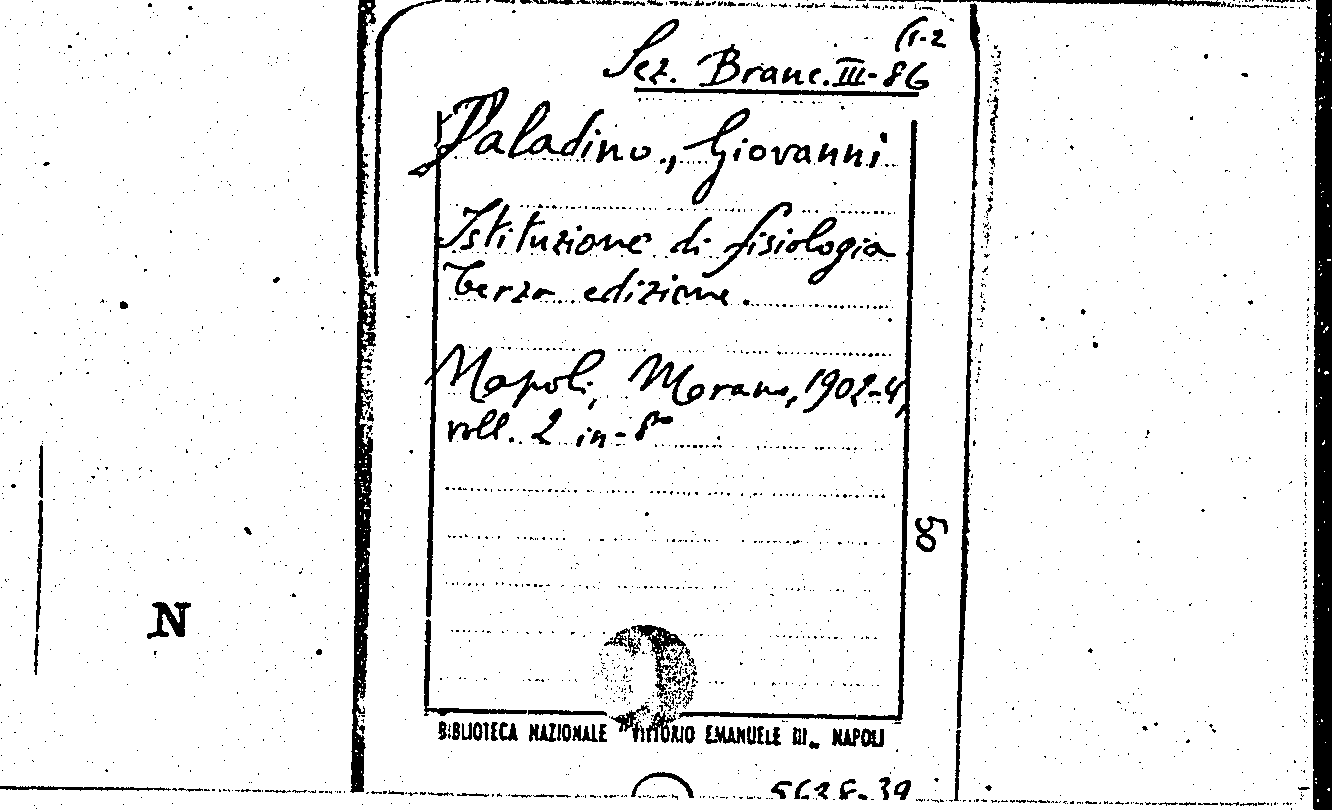 (1-2
Sez. Branc. III-86
Paladino, Giovanni
Istituzione di fisiologia
Terza edizione.
Napoli, Morano, 1902-4,
voll. 2 in-8°
50
N
BIBLIOTECA NAZIONALE "VITTORIO EMANUELE III„ NAPOLI